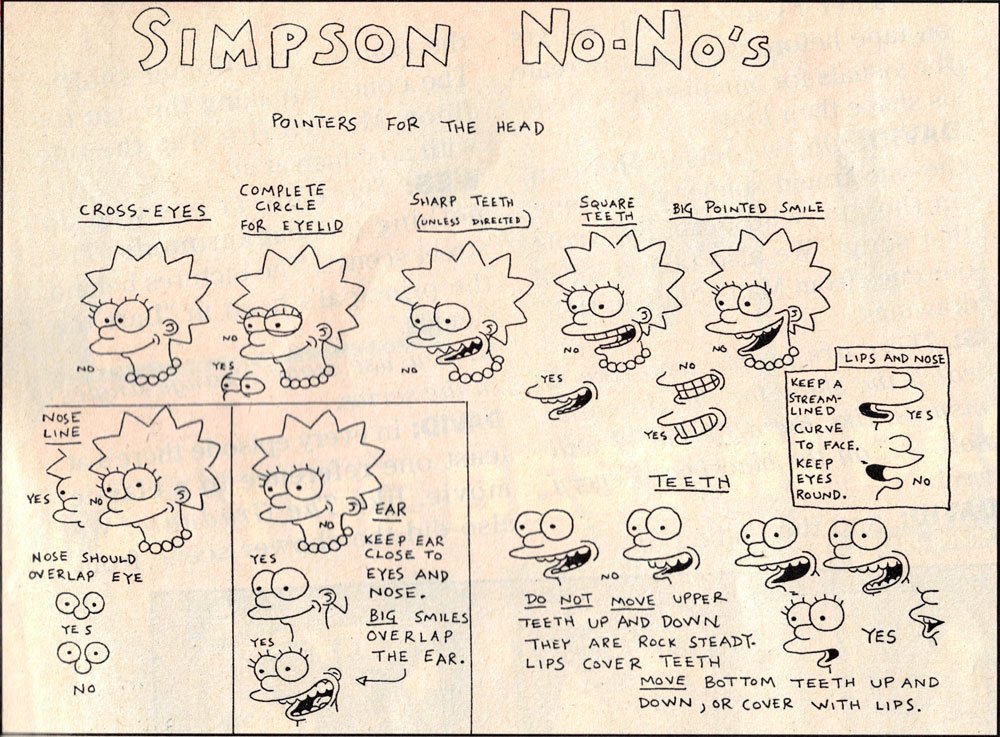 SIMPSON NO-NO'S
POINTERS FOR THE HEAD
CROSS-EYES
NO
COMPLETE
CIRCLE
FOR EYELID
NO
YES
SHARP TEETH
(UNLESS DIRECTED)
NO
YES
SQUARE
TEETH
NO
NO
YES
BIG POINTED SMILE
NO
LIPS AND NOSE
KEEP A
STREAM-
LINED
CURVE
TO FACE.
KEEP
EYES
ROUND.
YES
NO
NOSE
LINE
YES
NO
NOSE SHOULD
OVERLAP EYE
YES
NO
NO
EAR
KEEP EAR
CLOSE TO
EYES AND
NOSE.
BIG SMILES
OVERLAP
THE EAR.
YES
YES
TEETH
NO
DO NOT MOVE UPPER
TEETH UP AND DOWN
THEY ARE ROCK STEADY.
LIPS COVER TEETH
YES
MOVE BOTTOM TEETH UP AND
DOWN, OR COVER WITH LIPS.